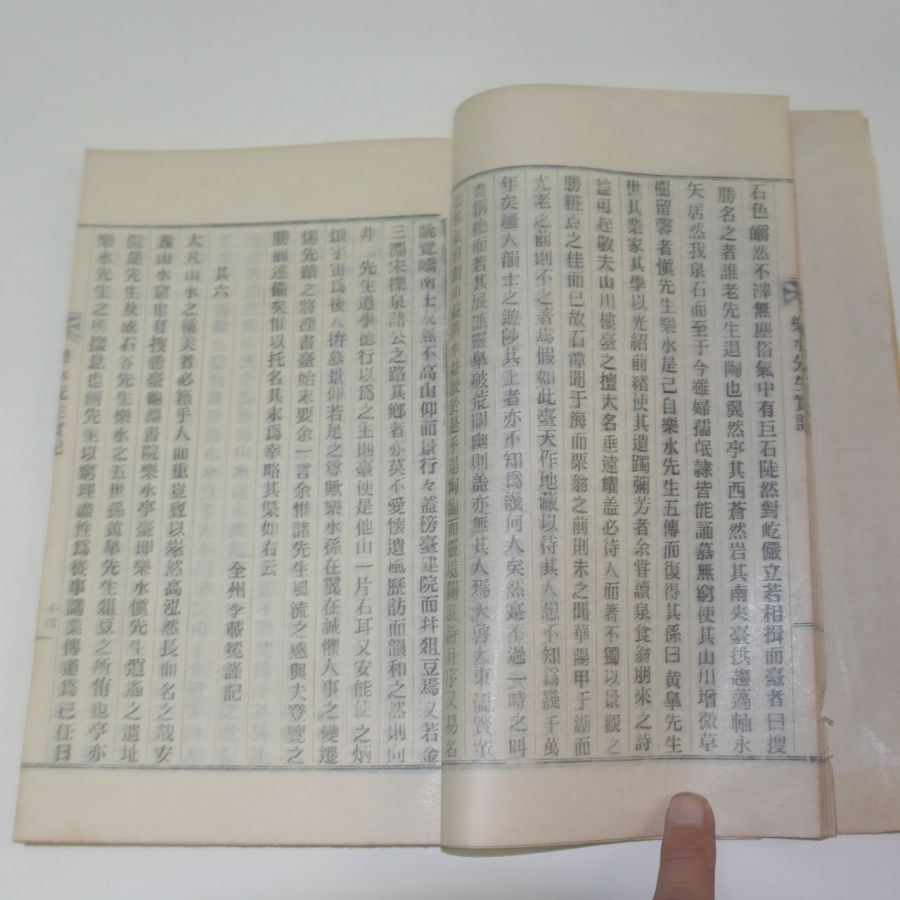 石色皭然不滓無塵俗氣中有巨石陡然對屹儼立若相揖而臺者曰搜
勝名之者誰老先生退陶也翼然亭其西蒼然岩其南夾臺拱趨薖軸永
矢居然我泉石而至于今雖婦孺氓隷皆能誦慕無窮使其山川增微草
樹留馨者愼先生樂水是已自樂水先生五傳而復得其係曰黃皐先生
世其業家其學以光紹前緖使其遺躅彌芳者余嘗讀泉食翁朋來之詩
益可起敬夫山川樓臺之擅大名垂遠耀盖必待人而著不獨以景觀之
勝粧点之佳而已故石潭聞于海而栗翁之前則未之聞華陽甲于湖而
尤老之前則不之著焉假如此臺天作地藏以待其人想不知爲幾千萬
年矣騷人韻士之遊陟其上者亦不知爲幾何人矣然臺不過一時之叫
奇稱絶而若其展滋靈皐破荒闡幽則盖亦無其人焉天啓大東儒賢輩
眺覽嶠南士友無不高山仰而景行々蓋傍臺建院而幷爼豆焉汉若金
三淵宋櫟泉諸公之路其鄕者亦莫不愛懷遺風歷訪而韻和之然則向
井 先生道學德行以爲之主則臺便是他山一片石耳又安能使之炳
烺宇宙爲後人拚嘉景仰若是之尊歟樂水孫在翼在誠懼人事之變遷
惕先蹟之將湮書臺始末要余一言余惟諸先生風流之感與夫登覽之
勝前述備矣惟以托名其末爲幸略其槩如右云
全州李載冕謹記
其六
大凡山水之極美者必藉乎人而重豈豈以崒然高泓然長而名之哉安
義山水窟也有搜勝臺龜淵書院樂水亭臺卽樂水愼先生遐施之遺址
院是先生及咸石谷先生樂水之五世孫黃皐先生爼豆之所侑也亭亦
樂水先生之所棲息也兩先生以窮理盡性爲從事講業傳道爲己任日
樂水先生實記
十四